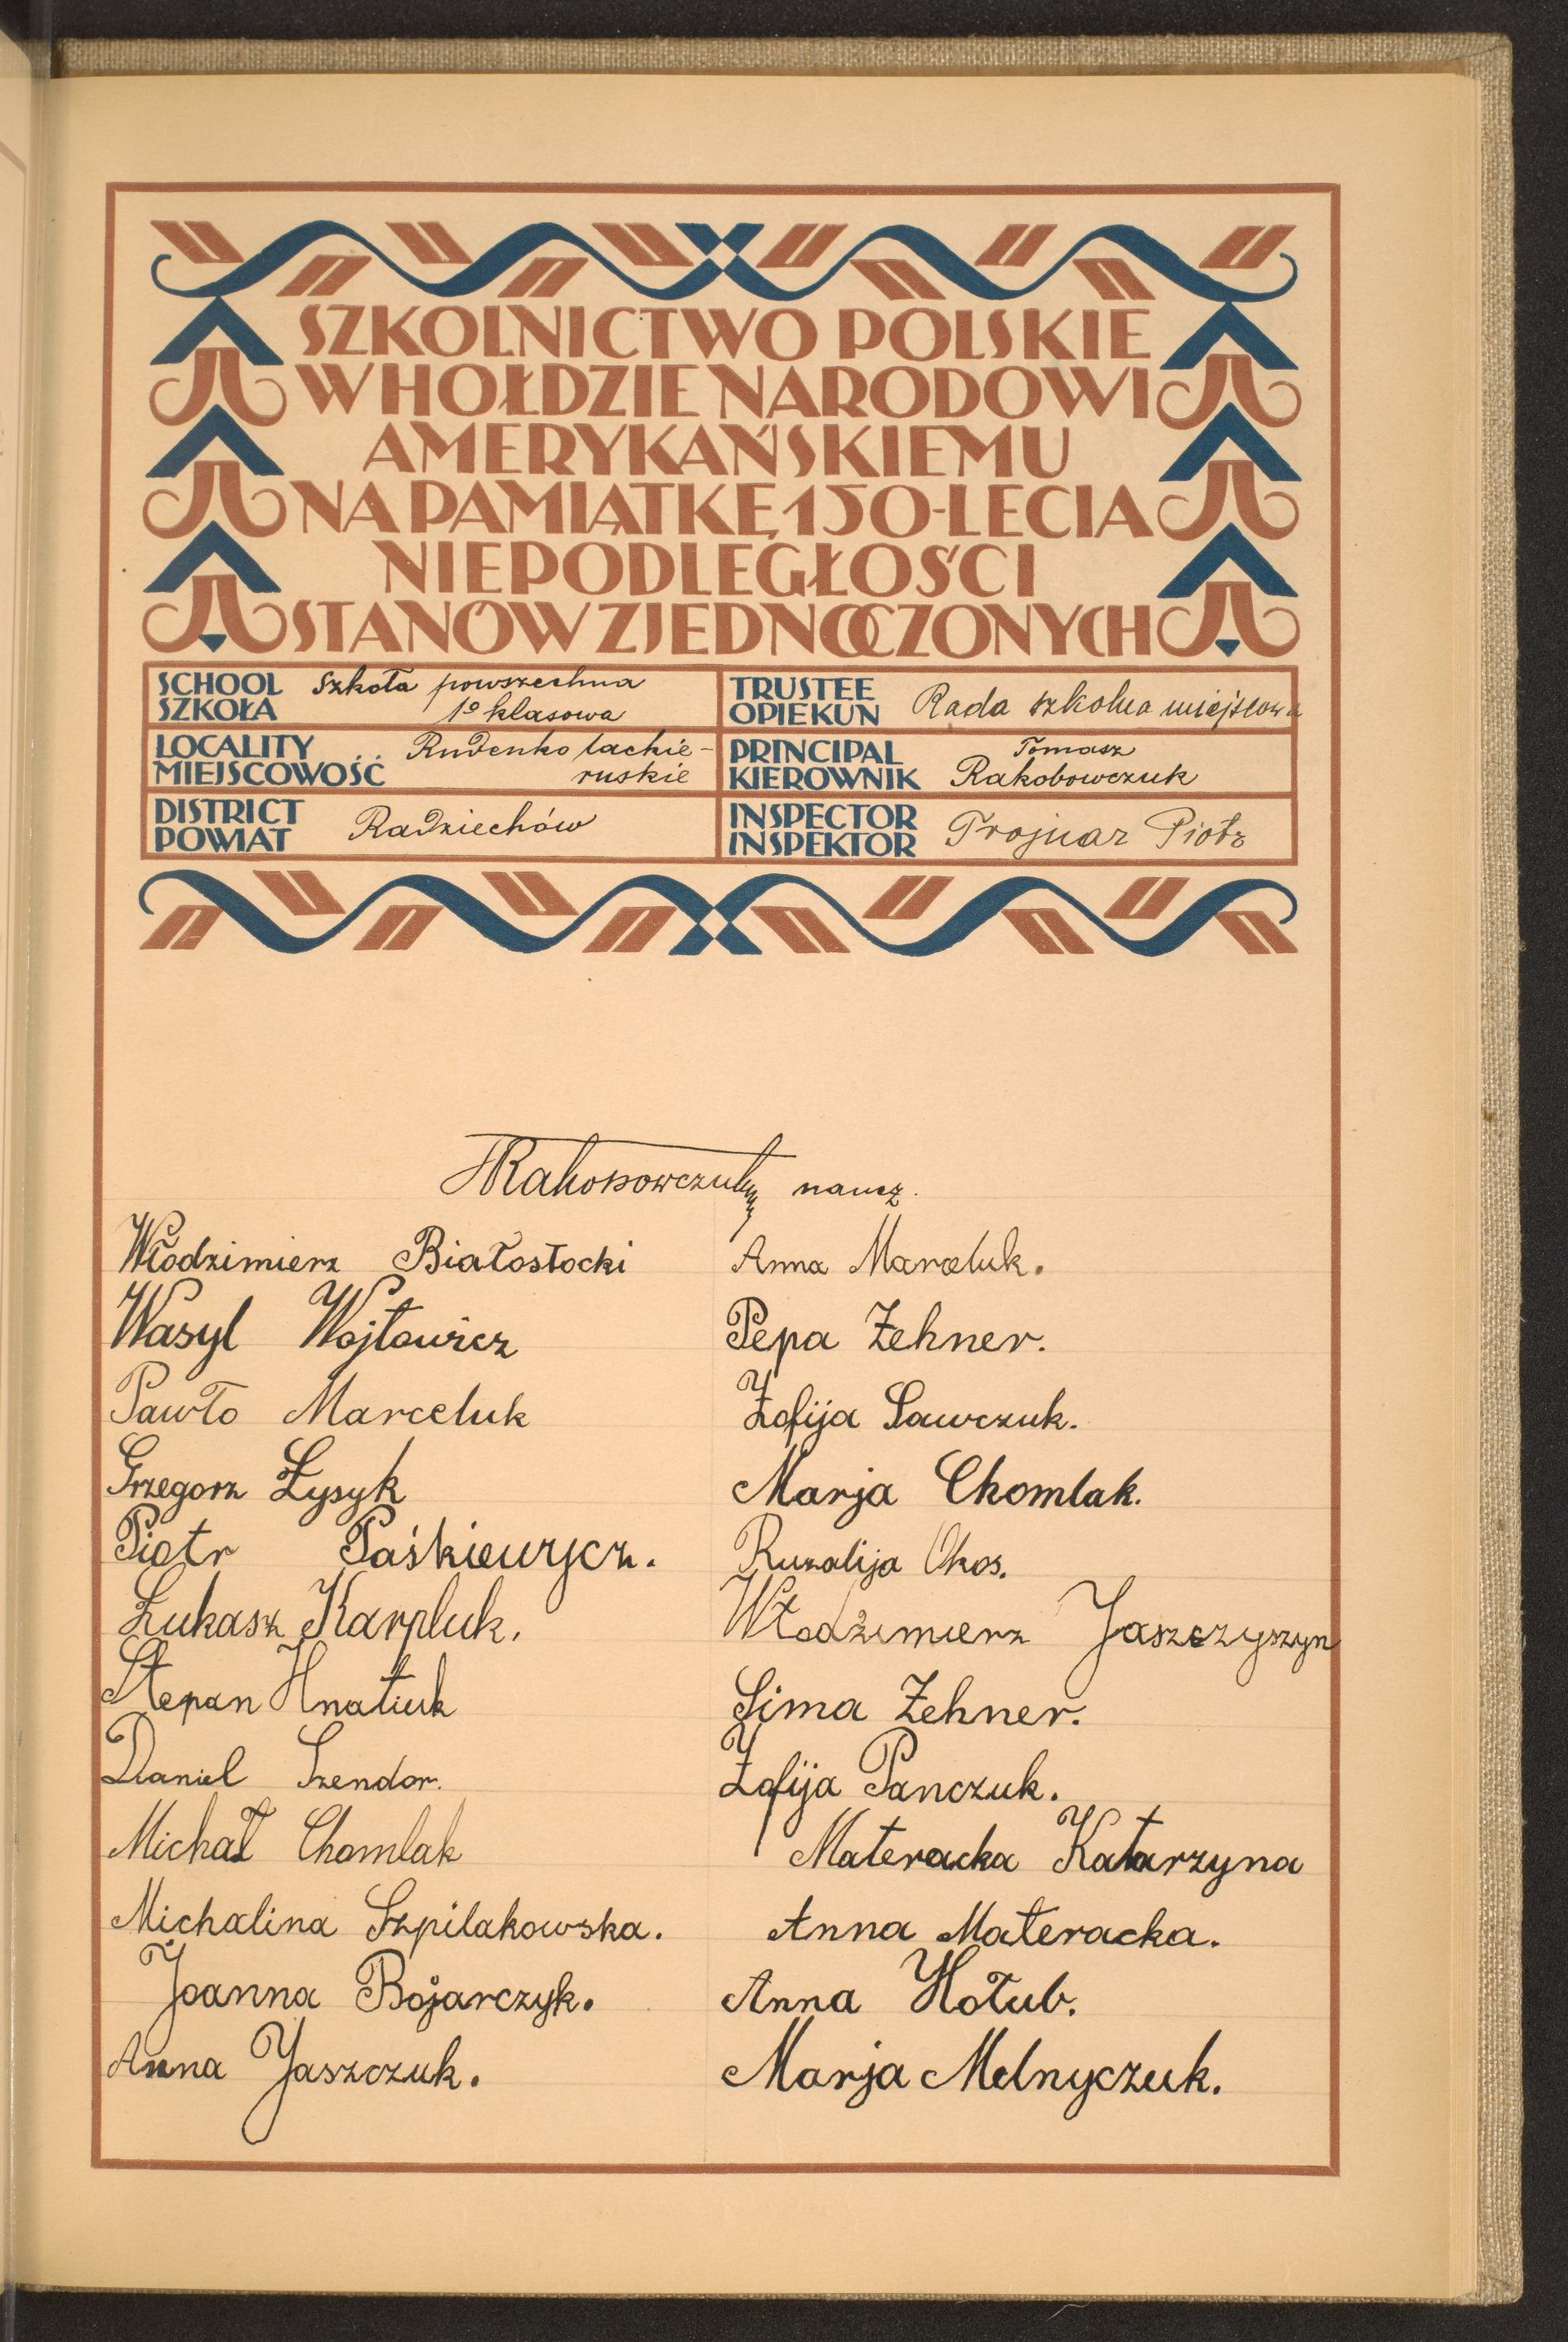 SZKOLNICTWO POLSKIE
W HOŁDZIE NARODOWI
AMERYKAŃSKIEMU
NA PAMIĄTKĘ 150-LECIA
NIEPODLEGŁOŚCI
STANÓW ZJEDNOCZONYCH
SCHOOL
SZKOŁA
Szkoła powszechna
1º klasowa
TRUSTEE
OPIEKUN
Rada szkolna miejscowa
LOCALITY
MIEJSCOWOŚĆ
Rudenko lackie-
ruskie
PRINCIPAL
KIEROWNIK
Tomasz
Rakobowczuk
DISTRICT
POWIAT
Radziechów
INSPECTOR
INSPEKTOR
Trojnar Piotr
TRakobowczuk naucz.
Włodzimierz Białostocki
Wasyl Wojtowicz
Pawło Marceluk
Grzegorz Łysyk
Piotr Paśkiewycz.
Łukasz Karpluk.
Stepan Hnatiuk
Daniel Szendor.
Michał Chomlak
Michalina Szpilakowska.
Joanna Bojarczyk.
Anna Jaszczuk.
Anna Marceluk.
Pepa Zehner.
Zofija Sawczuk.
Marja Chomlak.
Ruzalija Okos.
Włodzimierz Jaszczyszyn
Sima Zehner.
Zofija Panczuk.
Materacka Katarzyna
Anna Materacka.
Anna Hołub.
Marja Melnyczuk.